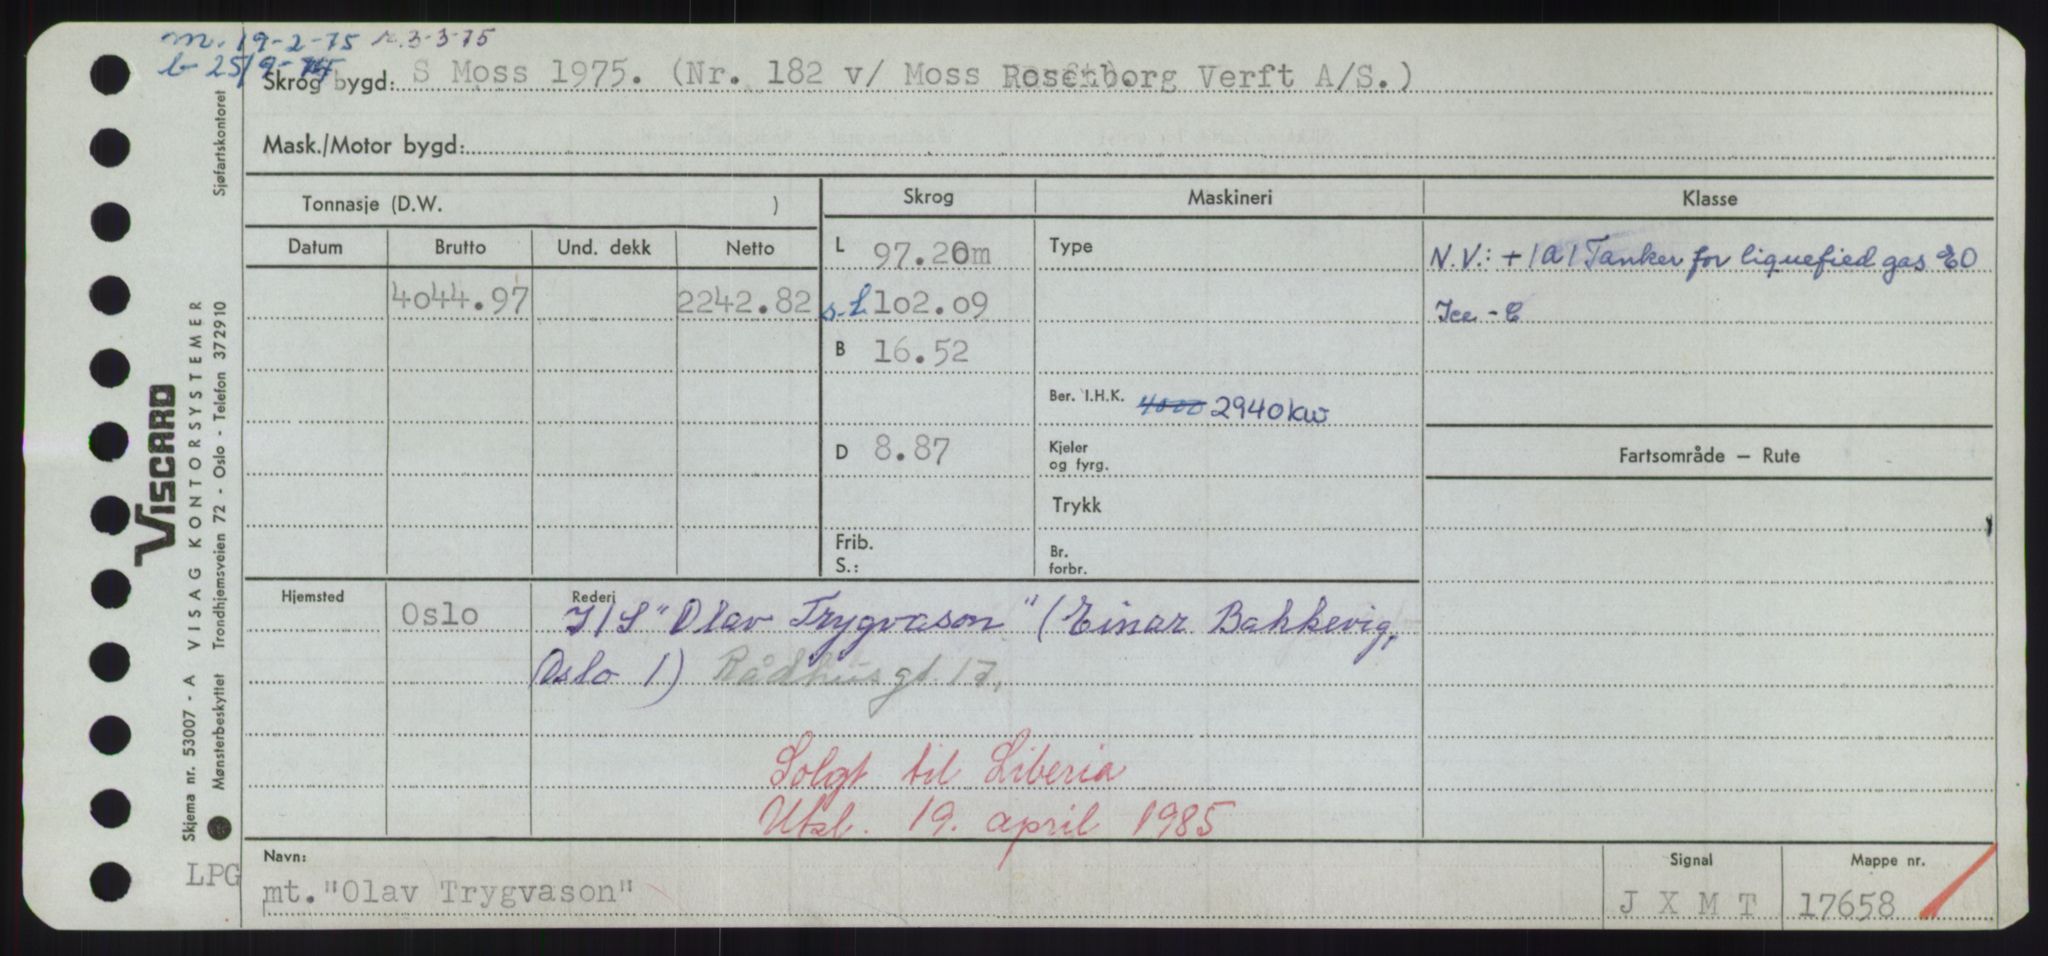 m. 19-2-75 r. 3-3-75
b 25/9-75
Skrog bygd: S Moss 1975. (Nr. 182 v/ Moss Rosenborg Verft A/S.)
Mask./Motor bygd:
Tonnasje (D.W. )
Skrog
Maskineri
Klasse
Datum
Brutto
Und. dekk
Netto
L 97.20m
Type
N.V.: +1A1 Tanker for liquefied gas EO
4044.97
2242.82
s.L 102.09
Ice - C
B 16.52
Ber. I.H.K. 4000 2940kw
D 8.87
Kjeler
og fyrg.
Fartsområde — Rute
Trykk
Frib.
S.:
Br.
forbr.
Hjemsted
Oslo
Rederi
I/S "Olav Trygvason" (Einar Bakkevig,
Oslo 1) Rådhusgt 17,
Solgt til Liberia
Utsl. 19. april 1985
LPG
Navn:
mt. "Olav Trygvason"
Signal
J X M T
Mappe nr.
17658
VISCARD
Skjema nr. 53007 - A VISAG KONTORSYSTEMER Sjøfartskontoret
Mønsterbeskyttet Trondhjemsveien 72 - Oslo - Telefon 372910